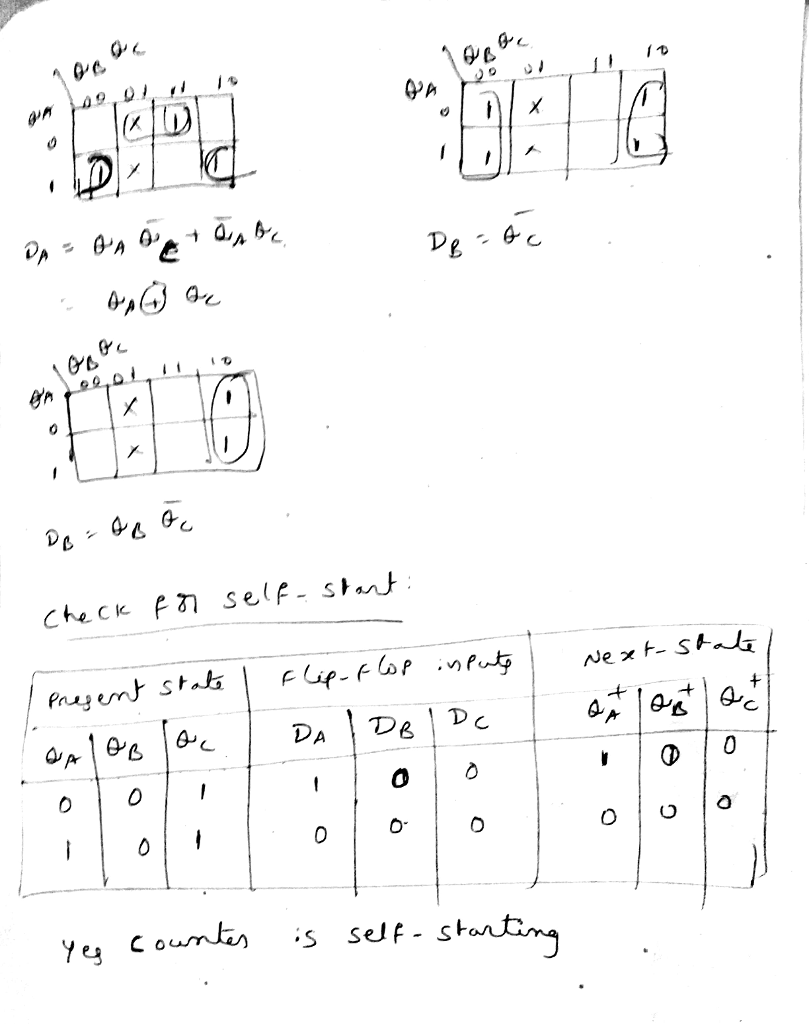 QB QC
QA 00 01 11 10
0 X 1
1 1 X 1
DA = QA Q̄C + Q̄A QC
= QA ⊕ QC
QB QC
QA 00 01 11 10
0 1 X 1
1 1 X 1
DB = Q̄C
QB QC
QA 00 01 11 10
0 X 1
1 X 1
DB = QB Q̄C
Check for self-start:
Present state | Flip-flop inputs | Next-state
QA | QB | QC | DA | DB | DC | QA+ | QB+ | QC+
0 0 1 1 0 0 1 0 0
1 0 1 0 0 0 0 0 0
Yes counter is self-starting